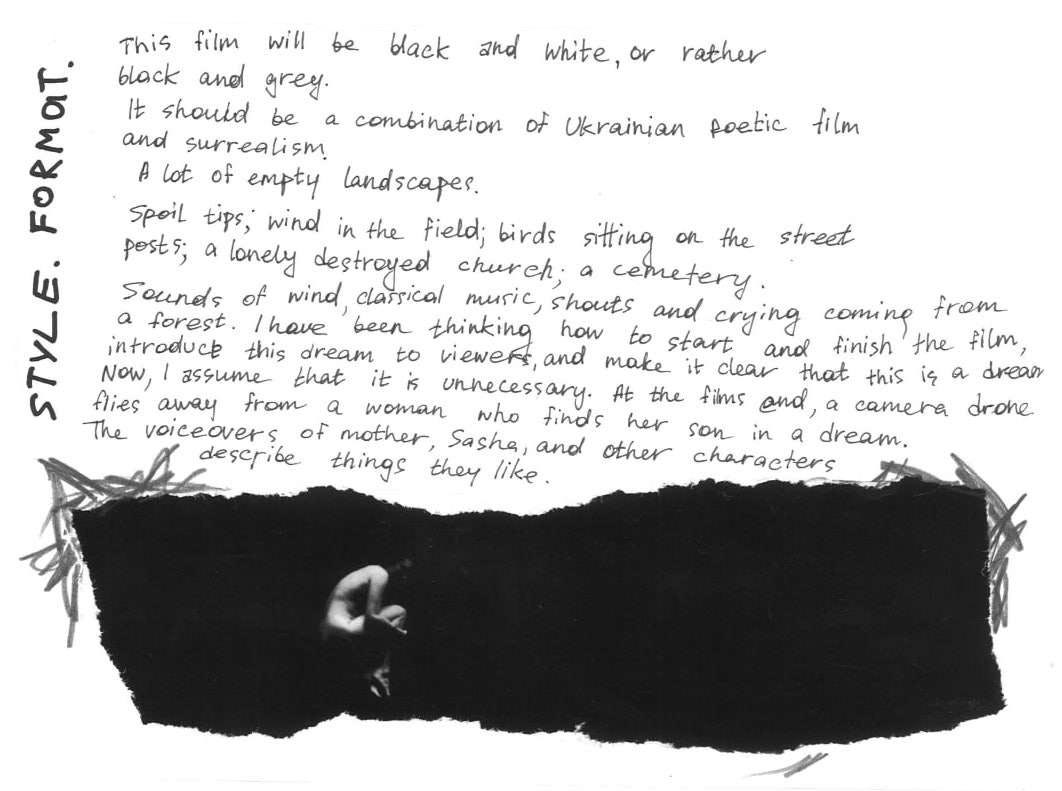 STYLE. FORMAT.
This film will be black and white, or rather
black and grey.
It should be a combination of Ukrainian poetic film
and surrealism.
A lot of empty landscapes.
Spoil tips; wind in the field; birds sitting on the street
posts; a lonely destroyed church; a cemetery.
Sounds of wind, classical music, shouts and crying coming from
a forest. I have been thinking how to start and finish the film,
introduct this dream to viewers, and make it clear that this is a dream
Now, I assume that it is unnecessary. At the films end, a camera drone
flies away from a woman who finds her son in a dream.
The voiceovers of mother, Sasha, and other characters
describe things they like.